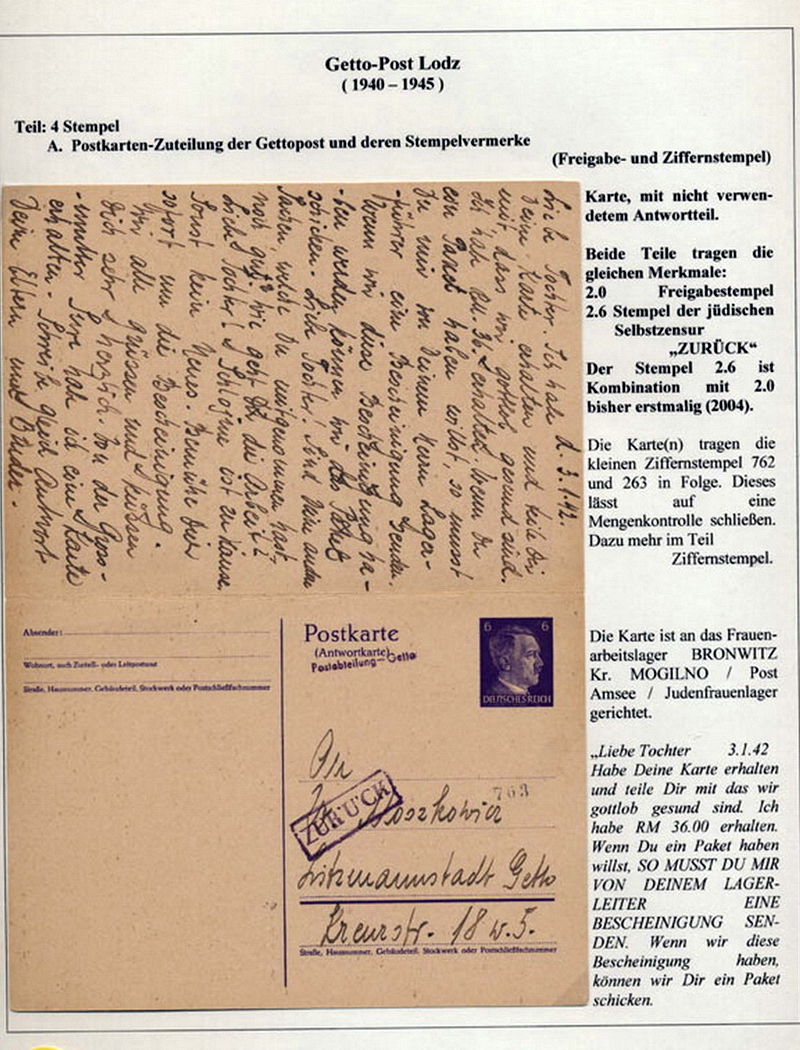 Getto-Post Lodz
( 1940 – 1945 )
Teil: 4 Stempel
A. Postkarten-Zuteilung der Gettopost und deren Stempelvermerke
(Freigabe- und Ziffernstempel)
d. 3.1.42.
Liebe Tochter. Ich habe
Deine Karte erhalten und teile Dir
mit, dass wir gottlob gesund sind.
Ich habe RM. 36 erhalten. Wenn Du
ein Paket haben willst, so musst
Du mir von Deinem Herrn Lager-
führer eine Bescheinigung senden.
Wenn wir diese Bescheinigung ha-
ben werden, können wir das Paket
schicken. Liebe Tochter! Sind Dir andere
Sachen, welche Du mitgenommen hast,
noch gut? Wie geht Dir die Arbeit?
Liebe Tochter! Schlojme ist zu Hause.
Sonst kein Neues. Bemühe Dich
sofort um die Bescheinigung.
Wir alle grüssen und küssen
Dich sehr herzlich. Von der Gross-
mutter habe ich eine Karte
erhalten. Schreibe gleich Antwort
Deine Eltern und Brüder.
Karte, mit nicht verwen-
detem Antwortteil.
Beide Teile tragen die
gleichen Merkmale:
2.0 Freigabestempel
2.6 Stempel der jüdischen
Selbstzensur
„ZURÜCK“
Der Stempel 2.6 ist
Kombination mit 2.0
bisher erstmalig (2004).
Die Karte(n) tragen die
kleinen Ziffernstempel 762
und 263 in Folge. Dieses
lässt auf eine
Mengenkontrolle schließen.
Dazu mehr im Teil
Ziffernstempel.
Absender:
Wohnort, auch Zustell- oder Leitpostamt
Straße, Hausnummer, Gebäudeteil, Stockwerk oder Postschließfachnummer
Postkarte
(Antwortkarte)
Postabteilung-Getto
6 6
DEUTSCHES REICH
An
ZURÜCK
Moszkowicz
763
Litzmannstadt Getto
Kreuzstr. 18 w. 5.
Straße, Hausnummer, Gebäudeteil, Stockwerk oder Postschließfachnummer
Die Karte ist an das Frauen-
arbeitslager BRONWITZ
Kr. MOGILNO / Post
Amsee / Judenfrauenlager
gerichtet.
„Liebe Tochter 3.1.42
Habe Deine Karte erhalten
und teile Dir mit das wir
gottlob gesund sind. Ich
habe RM 36.00 erhalten.
Wenn Du ein Paket haben
willst, SO MUSST DU MIR
VON DEINEM LAGER-
LEITER EINE
BESCHEINIGUNG SEN-
DEN. Wenn wir diese
Bescheinigung haben,
können wir Dir ein Paket
schicken.